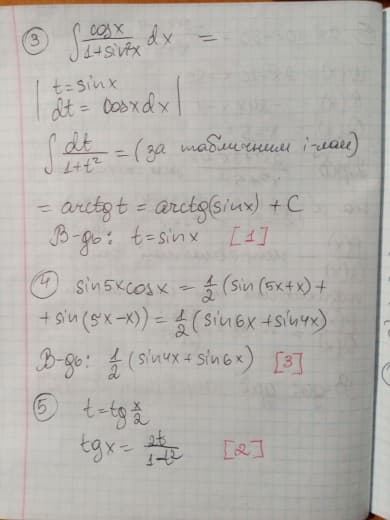 ③ ∫ cosx / 1+sin²x dx =
| t = sinx
dt = cosxdx |
∫ dt / 1+t² = (за табличним і-лом)
= arctg t = arctg(sinx) + C
В-дь: t = sinx [1]
④ sin5xcosx = 1/2 (sin(5x+x) +
+ sin(5x-x)) = 1/2 (sin6x + sin4x)
В-дь: 1/2 (sin4x + sin6x) [3]
⑤ t = tg x/2
tgx = 2t / 1-t² [2]